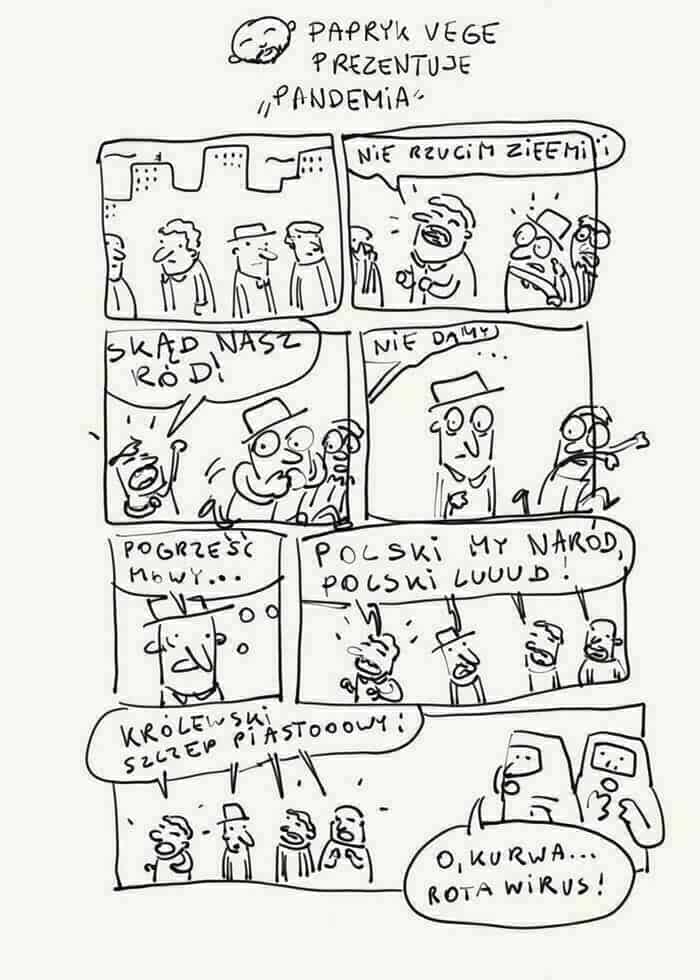 PAPRYK VEGE
PREZENTUJE
„PANDEMIA"
NIE RZUCIM ZIEEMIII
SKĄD NASZ
RÓD!
NIE DAMY
...
POGRZEŚĆ
MOWY...
POLSKI MY NARÓD,
POLSKI LUUUD!
KRÓLEWSKI
SZCZEP PIASTOOOWY!
O, KURWA...
ROTA WIRUS!